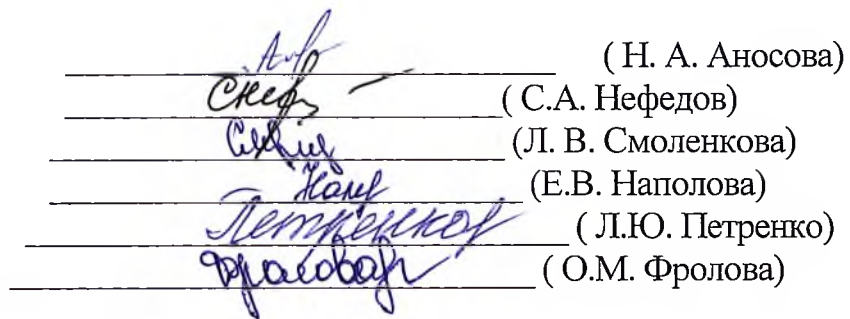 ( Н. А. Аносова)
( С.А. Нефедов)
(Л. В. Смоленкова)
(Е.В. Наполова)
Петренко ( Л.Ю. Петренко)
( О.М. Фролова)